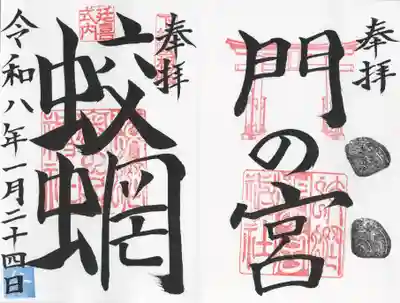 奉拝
門の宮
奉拝
蛟蝄
延喜
式内
令和八年一月二十四日